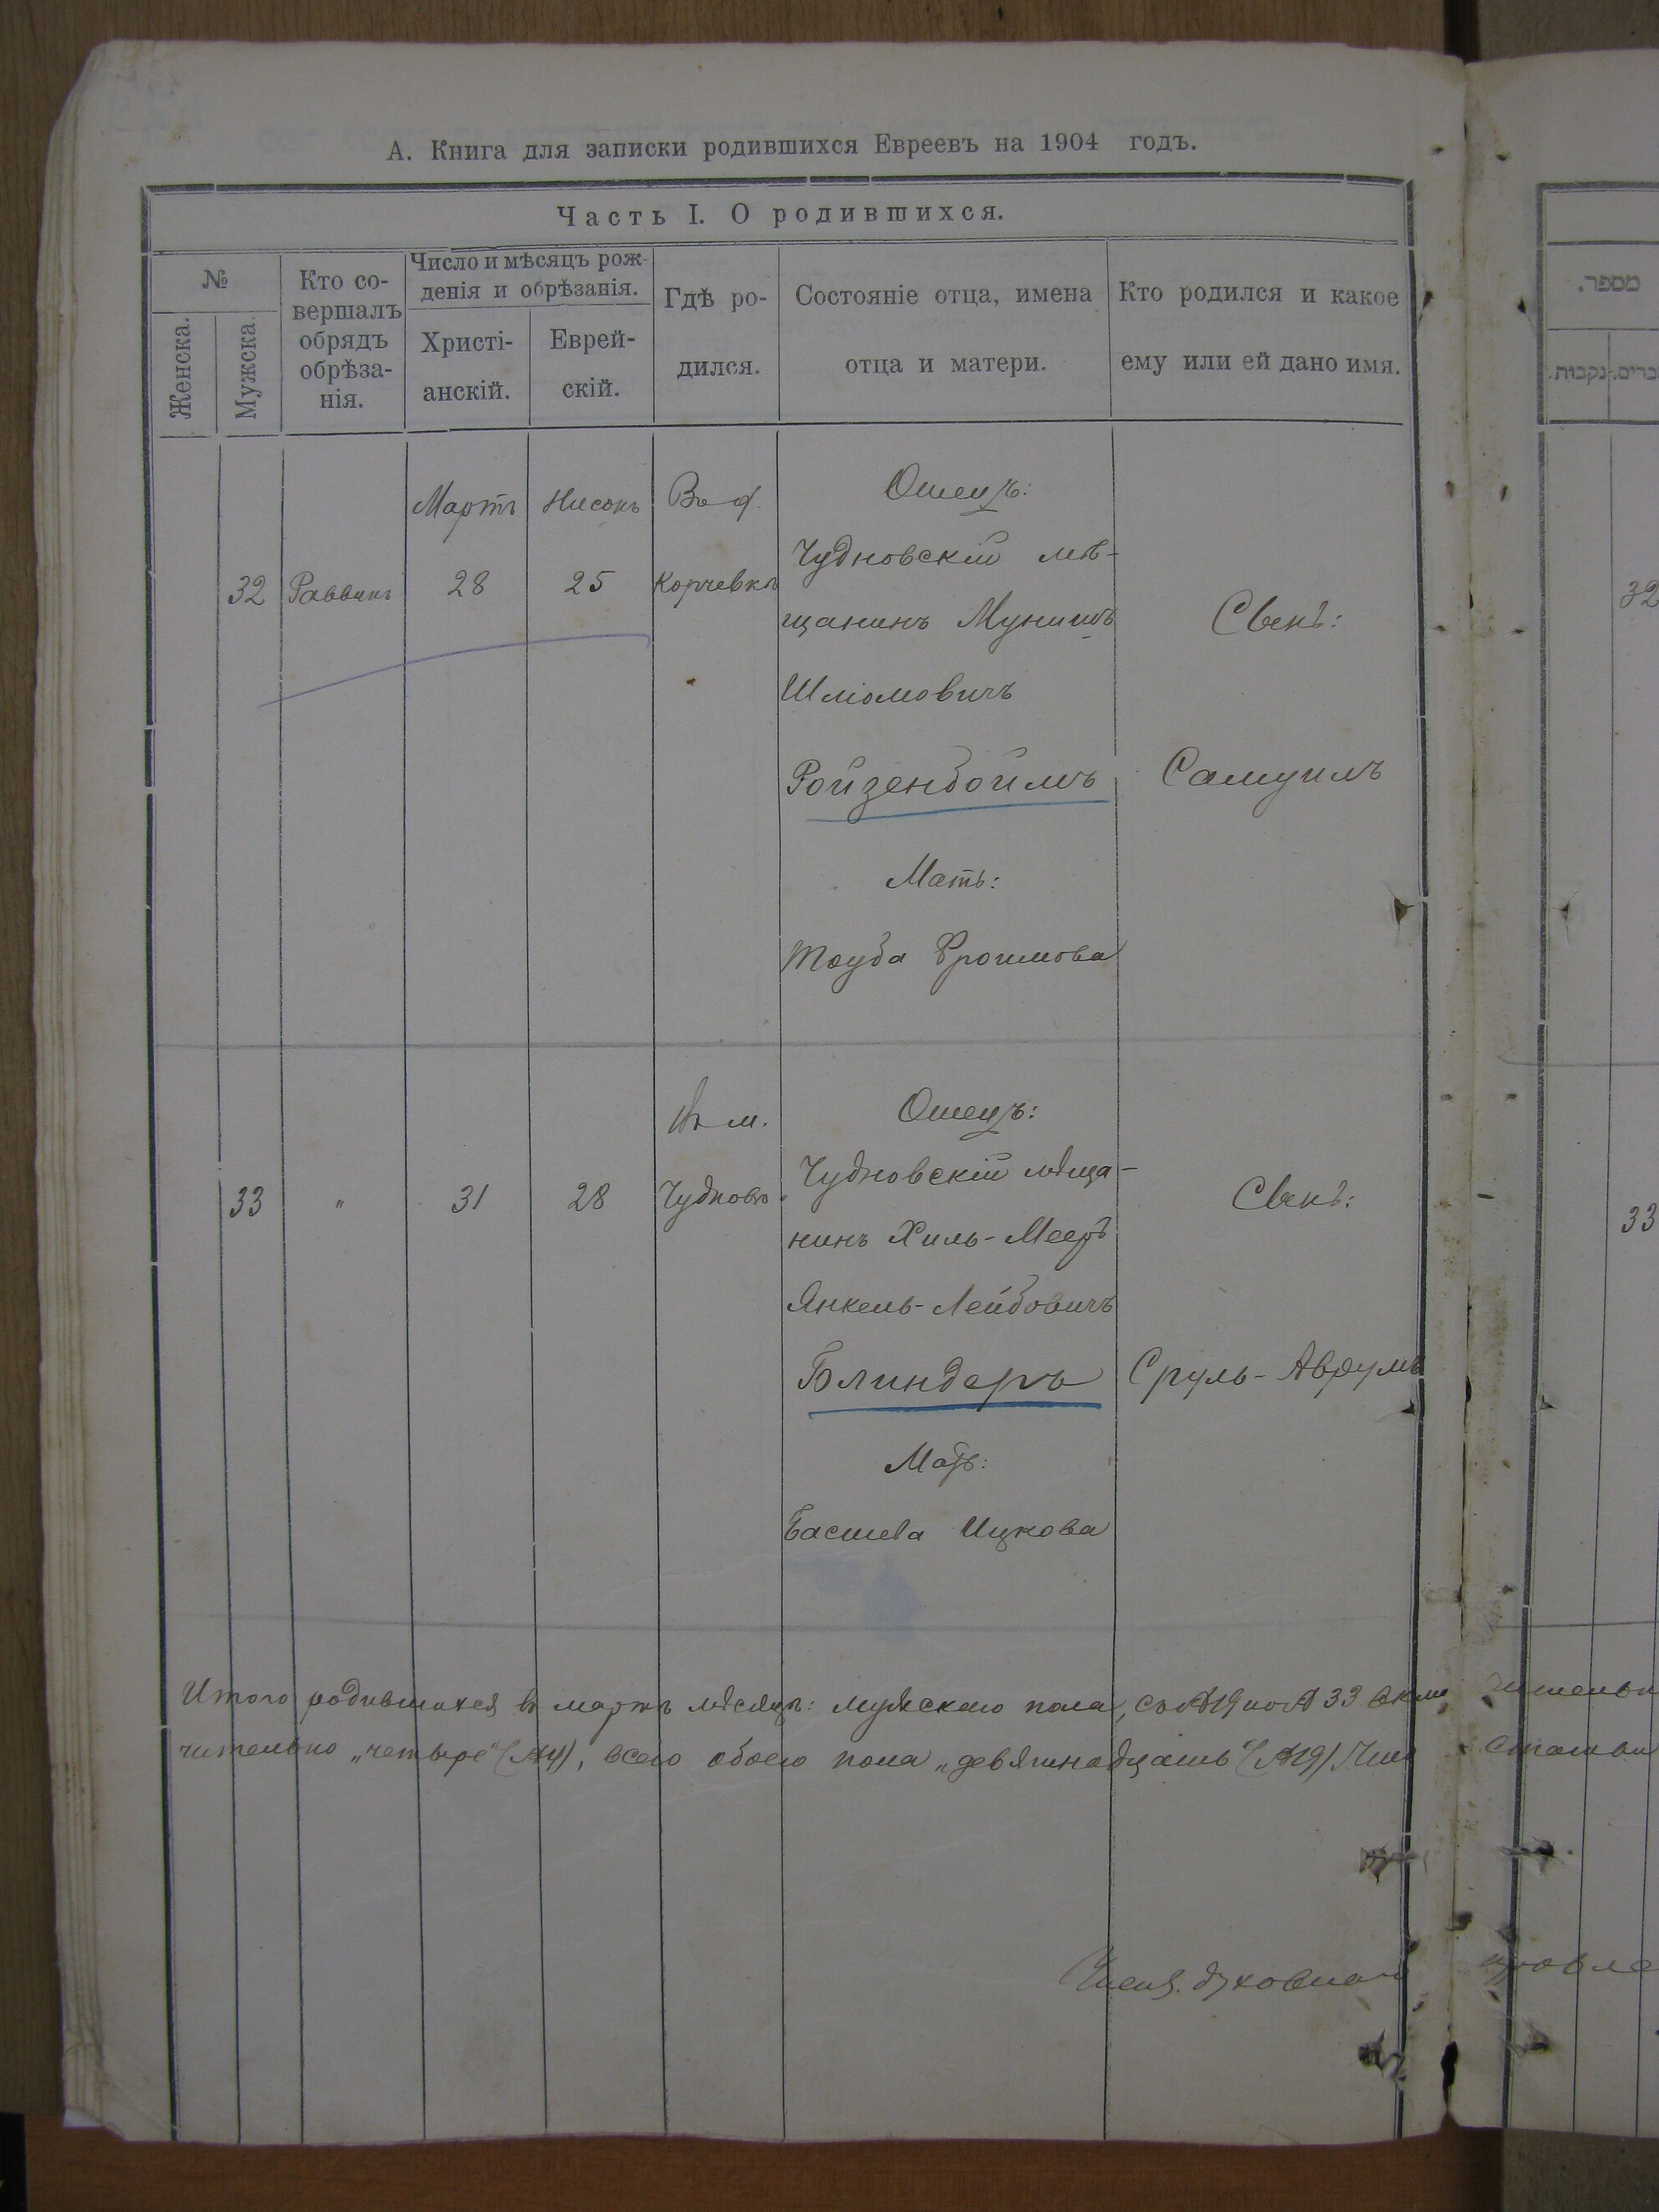 А. Книга для записки родившихся Евреевъ на 1904 годъ.
Часть I. О родившихся.
№
Женска.
Мужска.
Кто со-
вершалъ
обрядъ
обрѣза-
нія.
Число и мѣсяцъ рож-
денія и обрѣзанія.
Христі-
анскій.
Еврей-
скій.
Гдѣ ро-
дился.
Состояніе отца, имена
отца и матери.
Кто родился и какое
ему или ей дано имя.
32
Раввинъ
Мартъ
28
Нисонъ
25
Въ д.
Корчевкѣ
Отецъ:
Чудновскій мѣ-
щанинъ Мунишъ
Шліомовичъ
Ройзенбоймъ
Мать:
Тауба Фроимова
Сынъ:
Самуилъ
33
"
31
28
Въ м.
Чудновѣ
Отецъ:
Чудновскій мѣща-
нинъ Хиль-Мееръ
Янкель-Лейбовичъ
Блиндеръ
Мать:
Басшева Ицкова
Сынъ:
Сруль-Аврумъ
Итого родившихся въ мартѣ мѣсяцѣ: мужскаго пола, съ №19 по № 33 вклю
чительно „четыре“ (№4), всего обоего пола „девятнадцать“ (№19)
духовнаго
מספר.
נקבות.
32
33